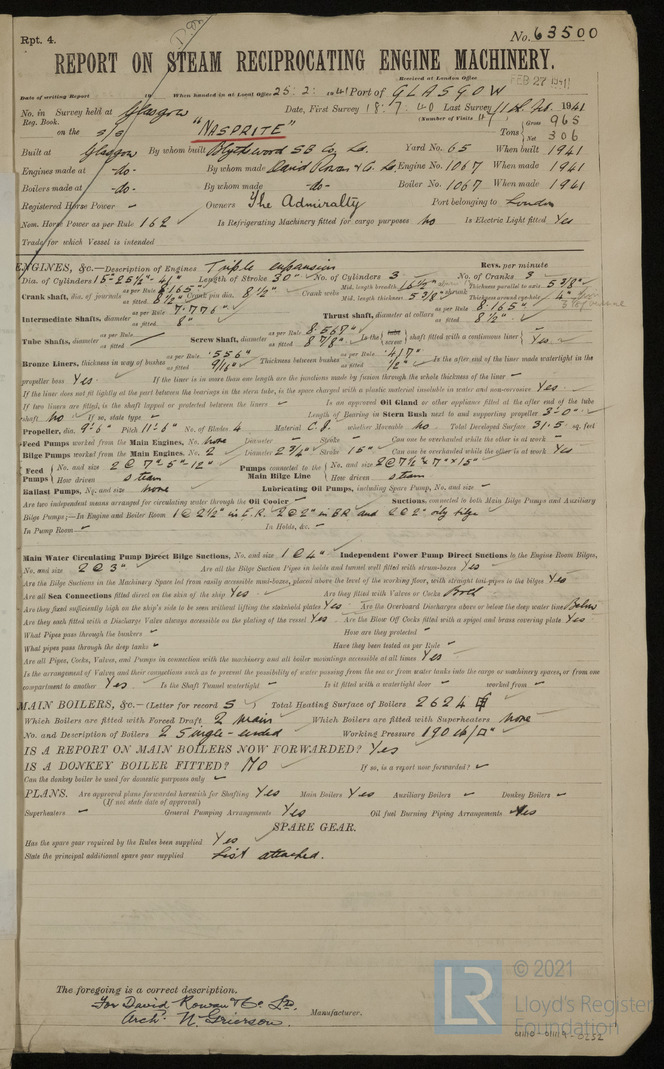 Rpt. 4.
No. 63500
REPORT ON STEAM RECIPROCATING ENGINE MACHINERY.
Received at London Office FEB 27 1941
Date of writing Report 19 When handed in at Local Office 25.2.1941 Port of GLASGOW
No. in Survey held at Glasgow Date, First Survey 18.7.40 Last Survey 1941
Reg. Book. (Number of Visits
on the s/s "NASPRITE" Tons Gross 965 Net 306
Built at Glasgow By whom built Blythswood SB Co. Ld. Yard No. 65 When built 1941
Engines made at -do- By whom made David Rowan & Co. Ld. Engine No. 1067 When made 1941
Boilers made at -do- By whom made -do- Boiler No. 1067 When made 1941
Registered Horse Power - Owners The Admiralty Port belonging to London
Nom. Horse Power as per Rule 162 Is Refrigerating Machinery fitted for cargo purposes No Is Electric Light fitted Yes
Trade for which Vessel is intended
ENGINES, &c.—Description of Engines Triple expansion Revs. per minute
Dia. of Cylinders 15-25½-41" Length of Stroke 30 No. of Cylinders 3 No. of Cranks 3
Crank shaft, dia. of journals as per Rule 8.165" as fitted 8½" Crank pin dia. 8½" Crank webs Mid. length breadth 16½" Mid. length thickness 5⅜" Thickness parallel to axis 5⅜" Thickness around eye-hole 4"
Intermediate Shafts, diameter as per Rule 7.776" as fitted 8" Thrust shaft, diameter at collars as per Rule 8.165" as fitted 8½"
Tube Shafts, diameter as per Rule as fitted Screw Shaft, diameter as per Rule 8.567" as fitted 8⅞" Is the tube screw shaft fitted with a continuous liner Yes
Bronze Liners, thickness in way of bushes as per Rule .556" as fitted 9/16" Thickness between bushes as per Rule .417" as fitted ½" Is the after end of the liner made watertight in the
propeller boss Yes If the liner is in more than one length are the junctions made by fusion through the whole thickness of the liner -
If the liner does not fit tightly at the part between the bearings in the stern tube, is the space charged with a plastic material insoluble in water and non-corrosive Yes
If two liners are fitted, is the shaft lapped or protected between the liners - Is an approved Oil Gland or other appliance fitted at the after end of the tube
shaft No If so, state type - Length of Bearing in Stern Bush next to and supporting propeller 3'-0"
Propeller, dia. 9'-6" Pitch 11'-6" No. of Blades 4 Material C.I. whether Moveable No Total Developed Surface 31.5 sq. feet
Feed Pumps worked from the Main Engines, No. None Diameter - Stroke - Can one be overhauled while the other is at work -
Bilge Pumps worked from the Main Engines, No. 2 Diameter 2¾" Stroke 15" Can one be overhauled while the other is at work Yes
Feed Pumps No. and size 2 @ 7"-5"-12" How driven steam Pumps connected to the Main Bilge Line No. and size 2 @ 7½" x 7" x 15" How driven steam
Ballast Pumps, No. and size None Lubricating Oil Pumps, including Spare Pump, No. and size -
Are two independent means arranged for circulating water through the Oil Cooler - Suctions, connected to both Main Bilge Pumps and Auxiliary
Bilge Pumps;—In Engine and Boiler Room 1 @ 2½" in E.R. 2 @ 2" in BR and 2 @ 2" oily bilge
In Pump Room - In Holds, &c. -
Main Water Circulating Pump Direct Bilge Suctions, No. and size 1 @ 4" Independent Power Pump Direct Suctions to the Engine Room Bilges,
No. and size 2 @ 3" Are all the Bilge Suction Pipes in holds and tunnel well fitted with strum-boxes Yes
Are the Bilge Suctions in the Machinery Space led from easily accessible mud-boxes, placed above the level of the working floor, with straight tail pipes to the bilges Yes
Are all Sea Connections fitted direct on the skin of the ship Yes Are they fitted with Valves or Cocks Both
Are they fixed sufficiently high on the ship's side to be seen without lifting the stokehold plates Yes Are the Overboard Discharges above or below the deep water line Below
Are they each fitted with a Discharge Valve always accessible on the plating of the vessel Yes Are the Blow Off Cocks fitted with a spigot and brass covering plate Yes
What Pipes pass through the bunkers - How are they protected -
What pipes pass through the deep tanks - Have they been tested as per Rule -
Are all Pipes, Cocks, Valves, and Pumps in connection with the machinery and all boiler mountings accessible at all times Yes
Is the arrangement of Valves and their connections such as to prevent the possibility of water passing from the sea or from water tanks into the cargo or machinery spaces, or from one
compartment to another Yes Is the Shaft Tunnel watertight - Is it fitted with a watertight door - worked from -
MAIN BOILERS, &c.—(Letter for record S) Total Heating Surface of Boilers 2624
Which Boilers are fitted with Forced Draft 2 main Which Boilers are fitted with Superheaters None
No. and Description of Boilers 2 Single-ended Working Pressure 190 lb/□"
IS A REPORT ON MAIN BOILERS NOW FORWARDED? Yes
IS A DONKEY BOILER FITTED? No If so, is a report now forwarded? -
Can the donkey boiler be used for domestic purposes only -
PLANS. Are approved plans forwarded herewith for Shafting Yes Main Boilers Yes Auxiliary Boilers - Donkey Boilers -
(If not state date of approval)
Superheaters - General Pumping Arrangements Yes Oil fuel Burning Piping Arrangements Yes
SPARE GEAR.
Has the spare gear required by the Rules been supplied Yes
State the principal additional spare gear supplied List attached.
The foregoing is a correct description.
For David Rowan & Co. Ld.
Arch. N Grierson. Manufacturer.
LR © 2021
Lloyd's Register
Foundation